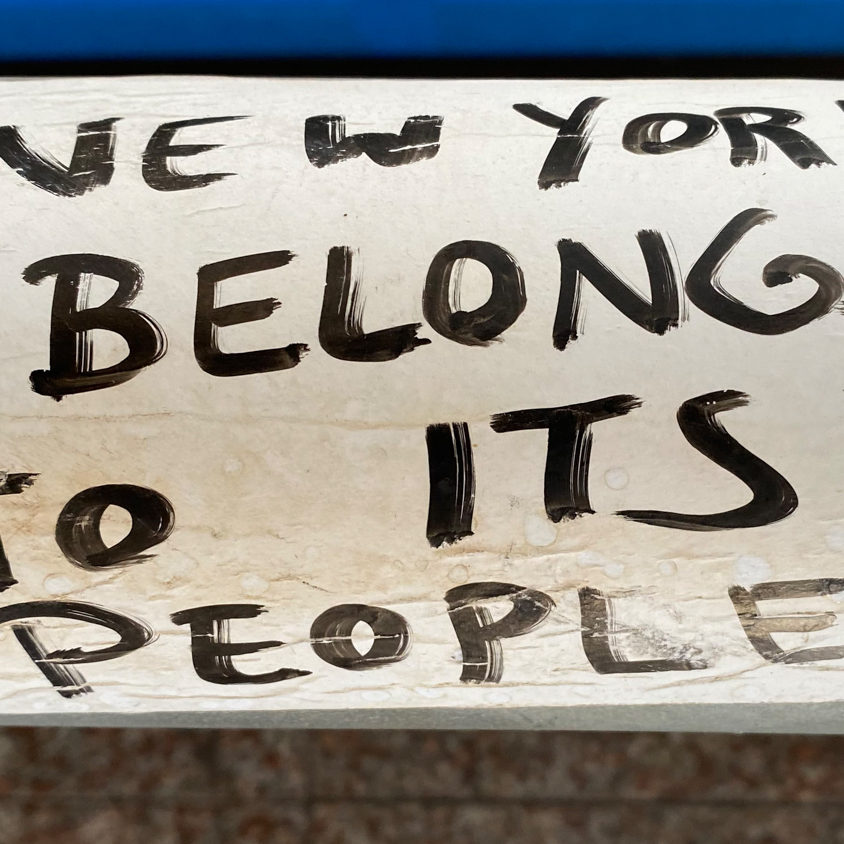 NEW YORK
BELONG
TO ITS
PEOPLE